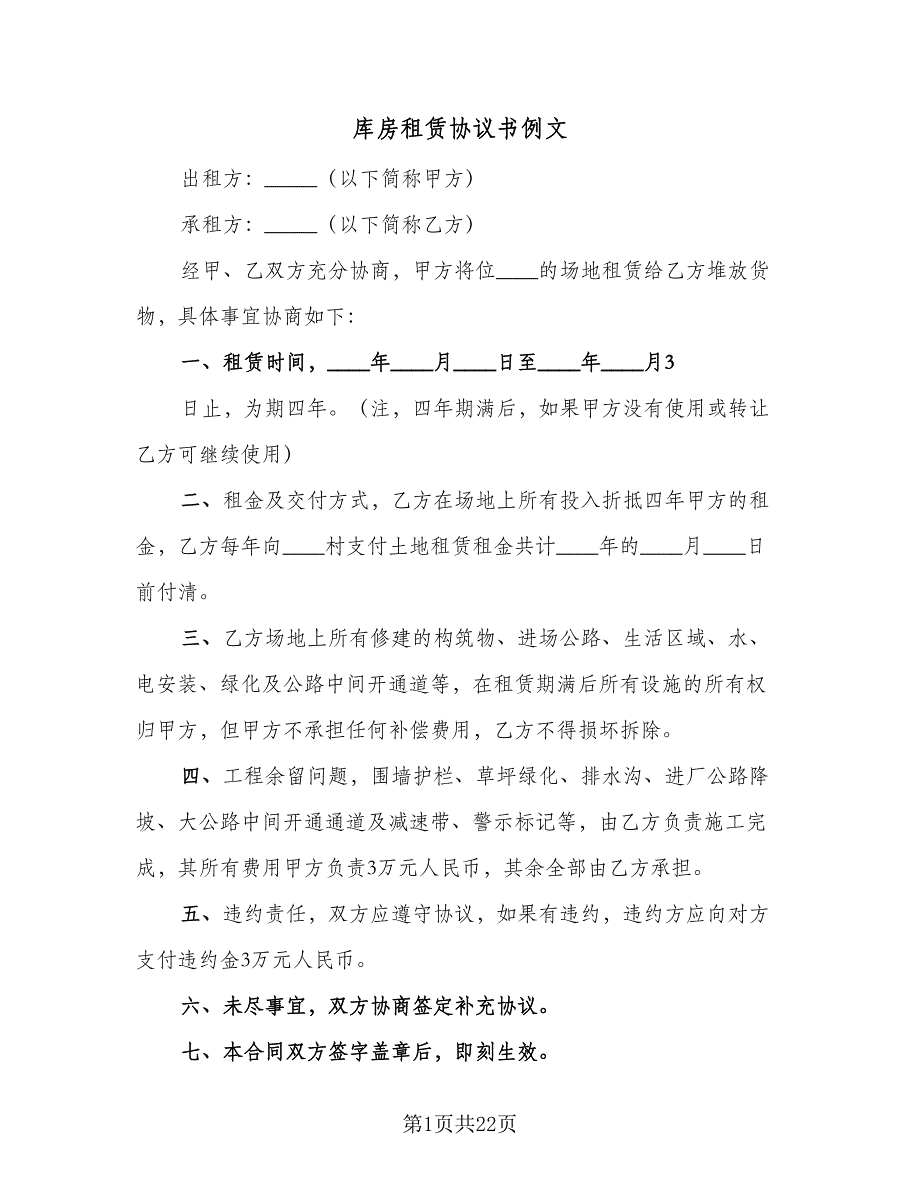 库房租赁协议书例文
出租方：_____（以下简称甲方）
承租方：_____（以下简称乙方）
经甲、乙双方充分协商，甲方将位____的场地租赁给乙方堆放货
物，具体事宜协商如下：
一、租赁时间，____年____月____日至____年____月3
日止，为期四年。（注，四年期满后，如果甲方没有使用或转让
乙方可继续使用）
二、租金及交付方式，乙方在场地上所有投入折抵四年甲方的租
金，乙方每年向____村支付土地租赁租金共计____年的____月____日
前付清。
三、乙方场地上所有修建的构筑物、进场公路、生活区域、水、
电安装、绿化及公路中间开通道等，在租赁期满后所有设施的所有权
归甲方，但甲方不承担任何补偿费用，乙方不得损坏拆除。
四、工程余留问题，围墙护栏、草坪绿化、排水沟、进厂公路降
坡、大公路中间开通通道及减速带、警示标记等，由乙方负责施工完
成，其所有费用甲方负责3万元人民币，其余全部由乙方承担。
五、违约责任，双方应遵守协议，如果有违约，违约方应向对方
支付违约金3万元人民币。
六、未尽事宜，双方协商签定补充协议。
七、本合同双方签字盖章后，即刻生效。
第1页共22页